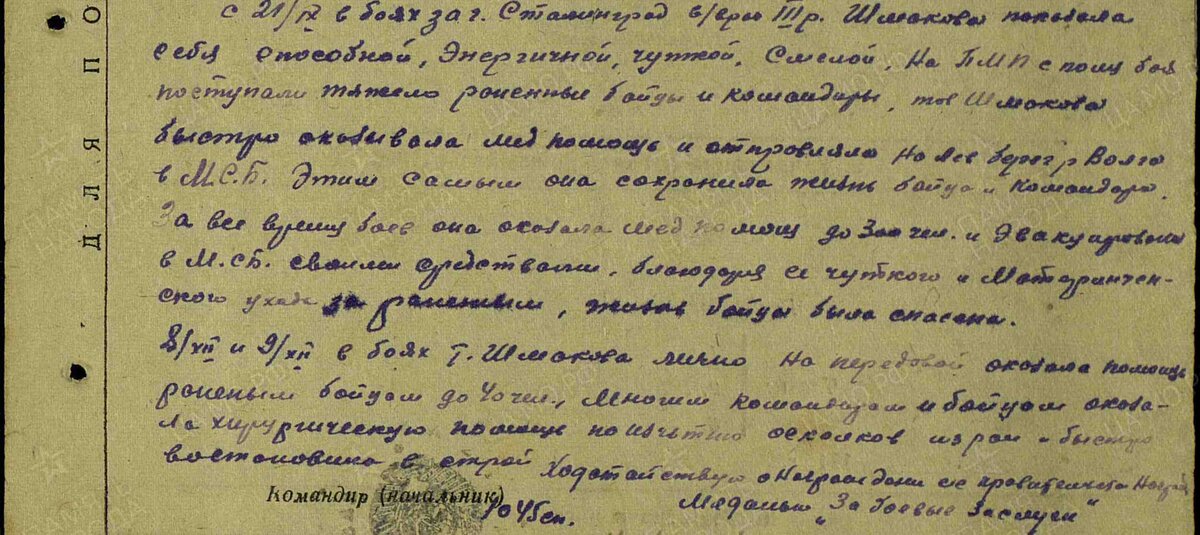 с 21/IX в боях за г. Сталинград в/врач IIIр. Шмакова показала
себя способной, Энергичной, чуткой, Смелой, На ПМП с поля боя
поступали тяжело раненные бойцы и командиры, тов Шмакова
быстро оказывала мед помощь и отправляла На лев берег р Волга
в М.С.Б. Этим самым она сохранила жизнь бойца и командира.
За все время боев она оказала мед помощ до 300 чел. и Эвакуировала
в М.СБ. своими средствами, благодаря ее чуткого и Материнчен-
ского ухода за раненым, жизнь бойца была спасена.
8/XII и 9/XII в боях т. Шмакова лично На передовой оказала помощь
раненым бойцам до 40 чел., Многим командирам и бойцам оказа-
ла хирургическую помощь по изъятию осколков из ран и быстро
востановила в строй
Ходотайствую о Награждении ее правительств Наград
Медалью "За боевые Заслуги"
Командир (начальник)
1045сп.
ДЛЯ ПО